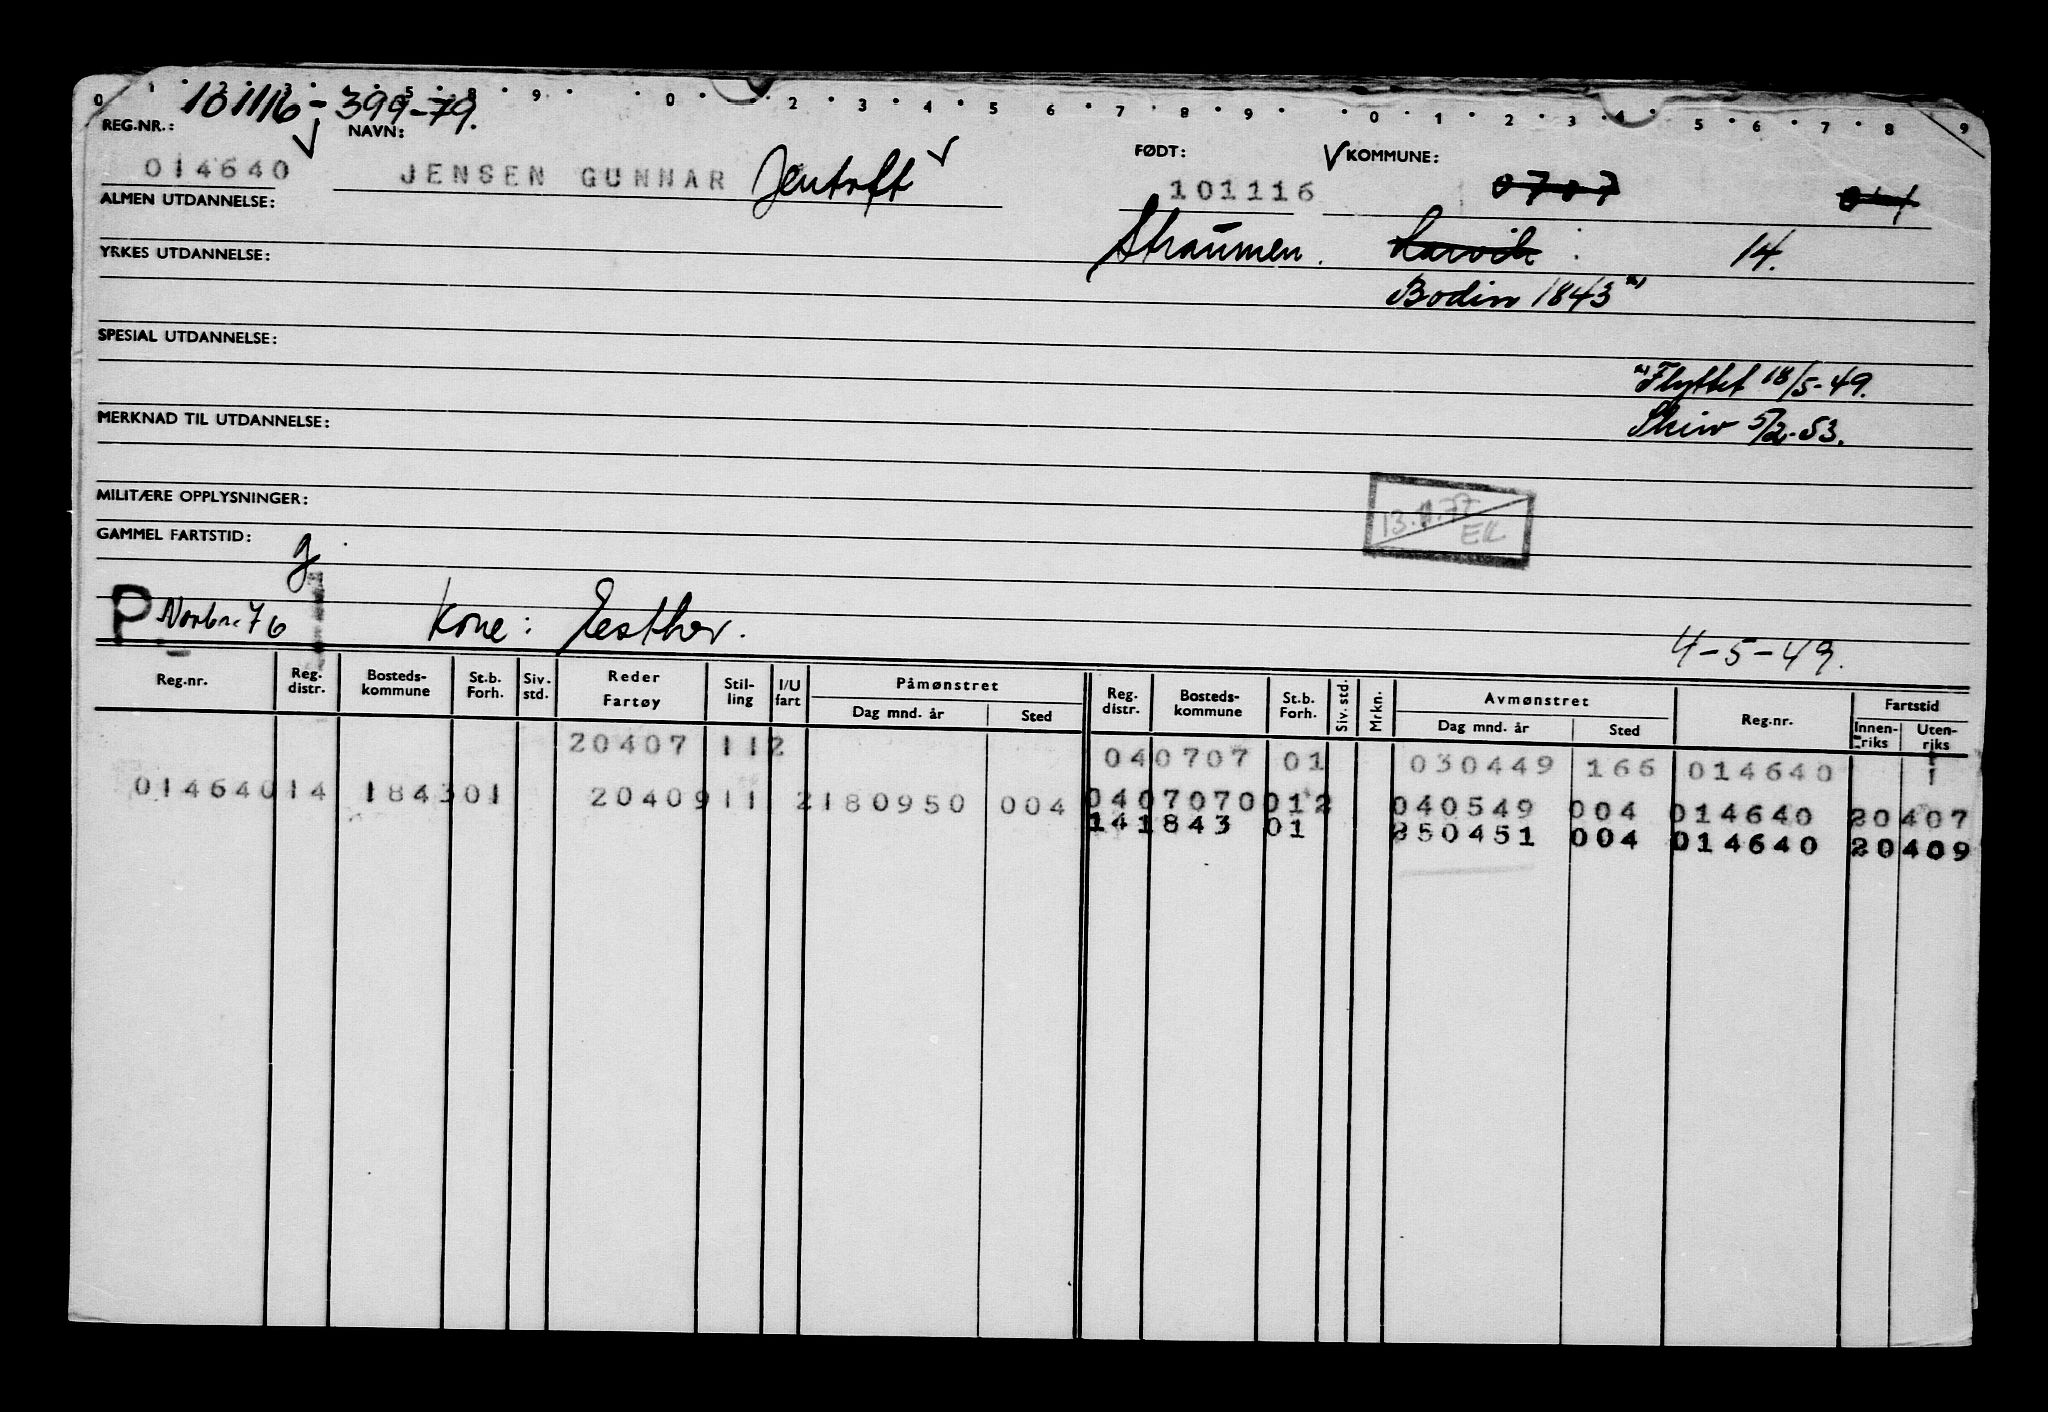 0 1 3 5 8 9 0 2 3 4 5 6 7 8 9 0 1 2 3 4 5 6 7 8 9
101116-399-79.
REG.NR.: NAVN: FØDT: KOMMUNE:
014640 JENSEN GUNNAR Jentoft 101116 0707
ALMEN UTDANNELSE:
Straumen. Larvik 14.
YRKES UTDANNELSE:
Bodin 1843 x)
SPESIAL UTDANNELSE:
x) Flyttet 18/5-49.
MERKNAD TIL UTDANNELSE:
Skiv 5/2-53.
MILITÆRE OPPLYSNINGER:
13.11.77
EK
GAMMEL FARTSTID: g
P Norbr. 76 Kone: Eesther.
4-5-49.
Reg.nr. Reg. distr. Bosteds-kommune St.b. Forh. Siv. std. Reder Fartøy Stil-ling I/U fart Påmønstret Dag mnd. år Sted Reg. distr. Bosteds-kommune St.b. Forh. Siv. std. Mrkn. Avmønstret Dag mnd. år Sted Reg.nr. Fartstid Innen-riks Uten-riks
20407 112 040707 01 030449 166 014640
014640 14 184301 20409 11 2180950 004 0407070012 040549 004 014640 20407
141843 01 250451 004 014640 20409